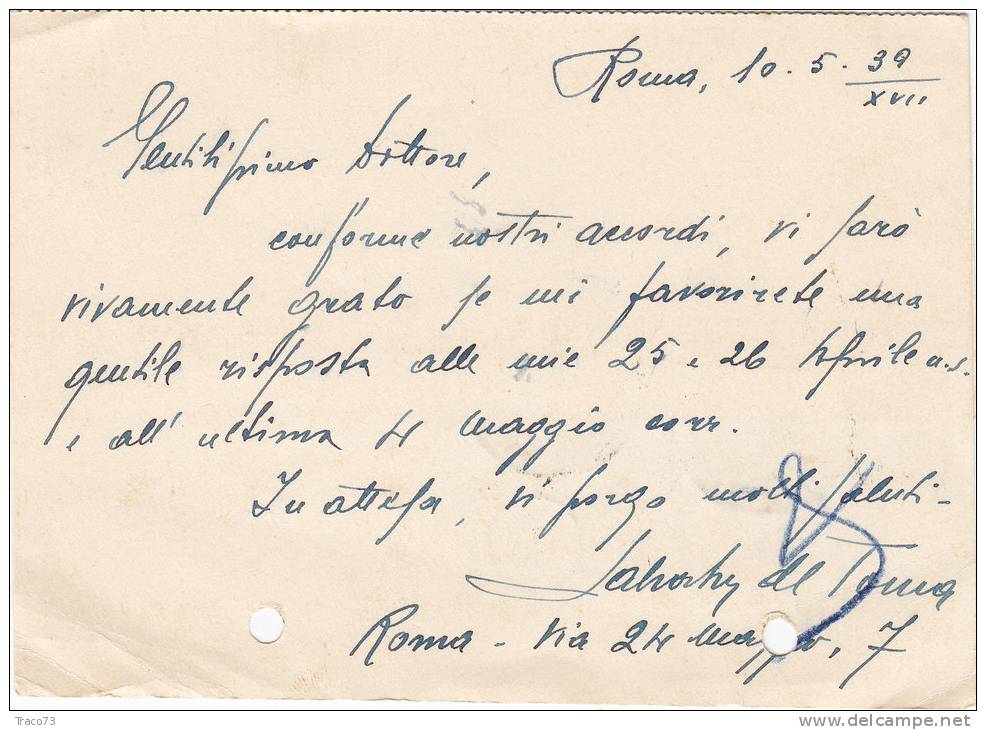 Roma, 10.5.39
XVII
Gentilissimo Dottore,
conforme nostri accordi, vi sarò
vivamente grato se mi favorirete una
gentile risposta alle mie 25 e 26 Aprile u.s.
e all'ultima 4 Maggio corr.
In attesa, vi porgo molti saluti -
de Toma
Roma - Via 24 Maggio, 7
Traco73
delcampe.net